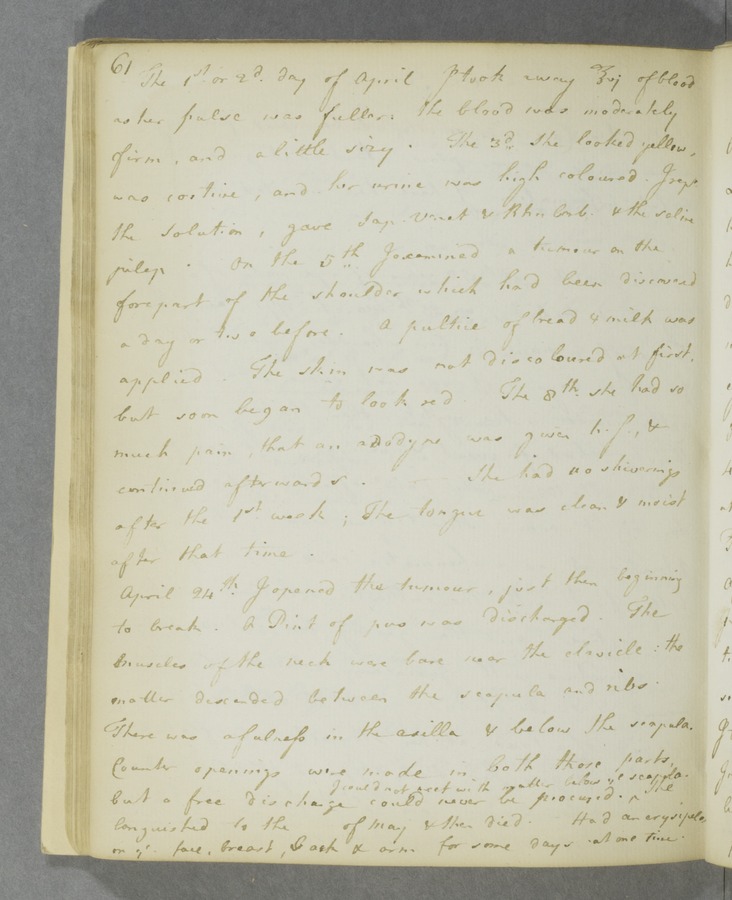 61
The 1st. or 2d. day of April I took away ℥vj of blood
as her pulse was fuller: the blood was moderately
firm, and a little sizy. The 3d. she looked yellow,
was costive, and her urine was high coloured.
the solution, gave Sap. Venet & Rhu: & the saline
julep. On the 5th I examined a tumour on the
forepart of the shoulder which had been discovered
a day or two before. A pultice of bread & milk was
applied. The skin was not discoloured at first,
but soon began to look red. The 8th. she had so
much pain, that an anodyne was given h. s., &
continued afterwards. She had no shiverings
after the 1st. week; The tongue was clean & moist
after that time.
April 24th. I opened the tumour, just then beginning
to break. A Pint of pus was discharged. The
muscles of the neck were bare near the clavicle: the
matter descended between the scapula and ribs.
There was a fulness in the axilla & below the scapula.
Counter openings were made in both those parts,
I could not meet with matter below ye scapula.
but a free discharge could never be procured. ^ She
languished to the of May & then died. Had an erysipelas
on ye. face, breast, back & arm for some days at one time.